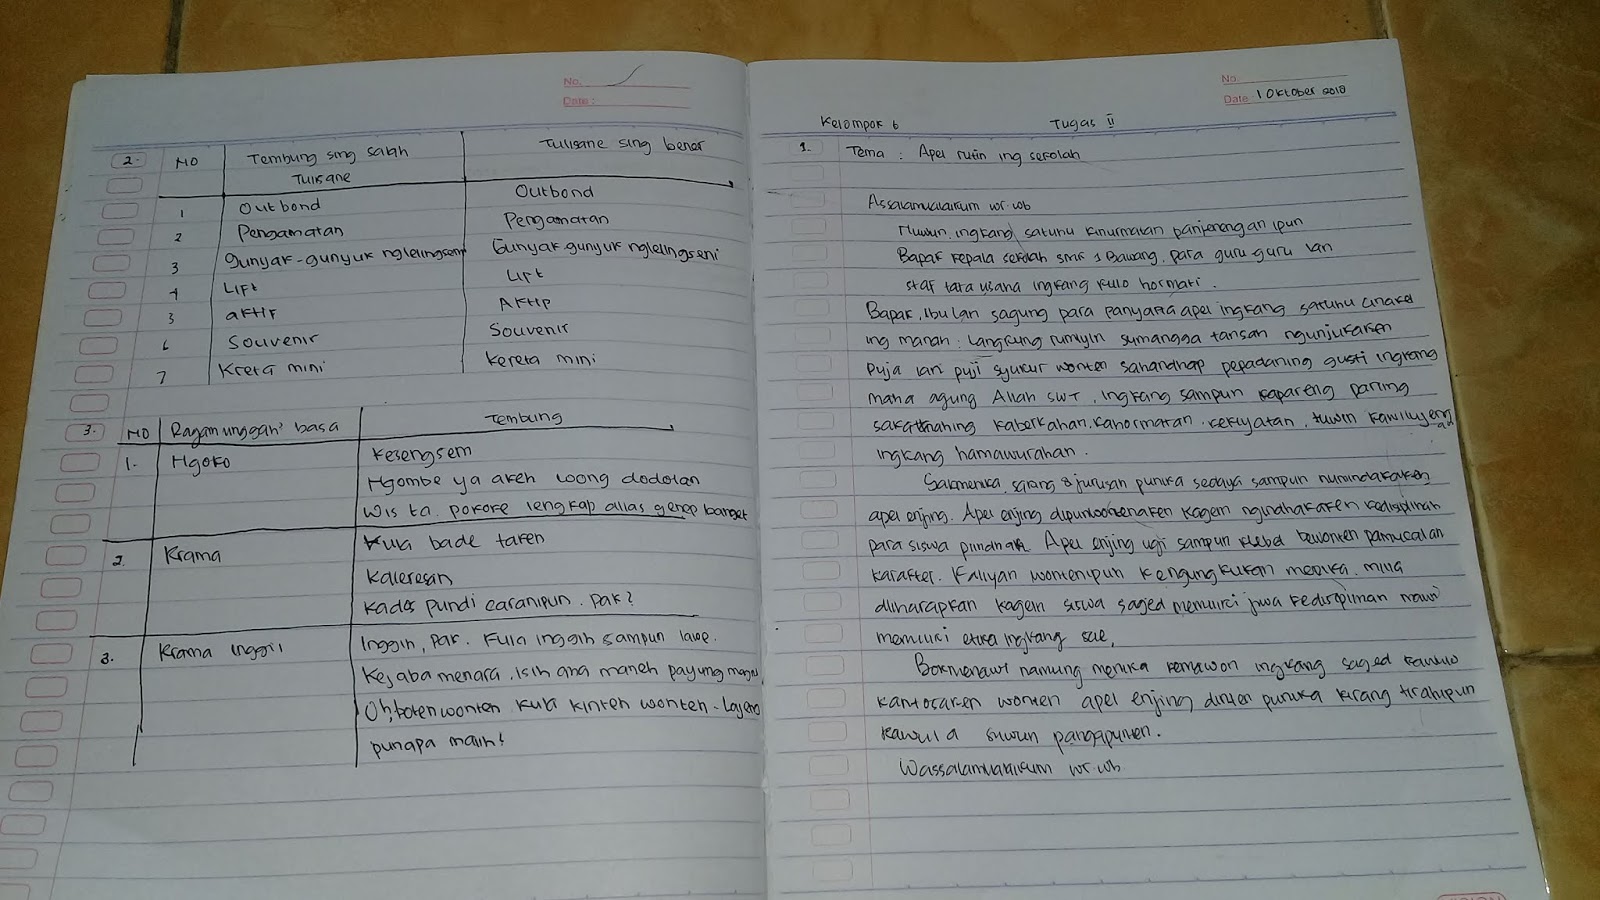 No.
Date :
2. NO Tembung sing salah Tulisane sing bener
Tulisane
1 Outbond Outbond
2 Pengamatan Pengamatan
3 gunyak-gunyuk nglelingseni Gunyak gunyuk nglelingseni
4 Lift Lift
5 aktif Aktip
6 Souvenir Souvenir
7 Kreta mini Kereta mini
3. NO Ragam unggah² basa Tembung
1. Ngoko Kesengsem
Ngombe ya akeh woong dodolan
Wis ta. pokoke lengkap alias genep banget
2. Krama Kula bade taken
Kaleresan
Kados pundi caranipun. pak?
3. Krama Inggil Inggih, pak. Kula inggih sampun lawe.
Kejaba menara, isih ana maneh payung
Oh, boten wonten kula kinten wonten-
punapa malih?
No.
Date 1 Oktober 2018
Kelompok 6 Tugas II
1. Tema : Apel rutin ing sekolah
Assalamualaikum wr.wb
Nuwun, ingkang satuhu kinurmatan panjenengan ipun
Bapak kepala sekolah smk 1 Bawang, para guru-guru lan
staf tata usaha ingkang kulo hormati.
Bapak, Ibu lan sagung para panyarta apel ingkang satuhu
ing manah. Langkung rumiyin sumangga tansah ngunjukaken
puja lan puji syukur wonten sahandhap pepadaning gusti ingkang
maha agung Allah SWT, ingkang sampun kapareng paring
kaberkahan, kahormatan, kekiyatan, tuwin
ingkang hamawurahan.
Sakmenika, siang 8 jurusan punika sedaya sampun nunindakaken
apel enjing. Apel enjing dipunwontenaken kagem ngindhakaken kedisiplinan
para siswa Apel enjing ugi sampun pamucalan
karakter. Kaliyan wontenipun menika. mila
diharapkan kagem siswa saged memiliki jiwa kedisiplinan
memiliki etika ingkang sae,
Bokmenawi namung menika kemawon ingkang saged kawulo
wonten apel enjing dinten punika kirang
kawula suwun pangapunten.
Wassalamualaikum wr.wb